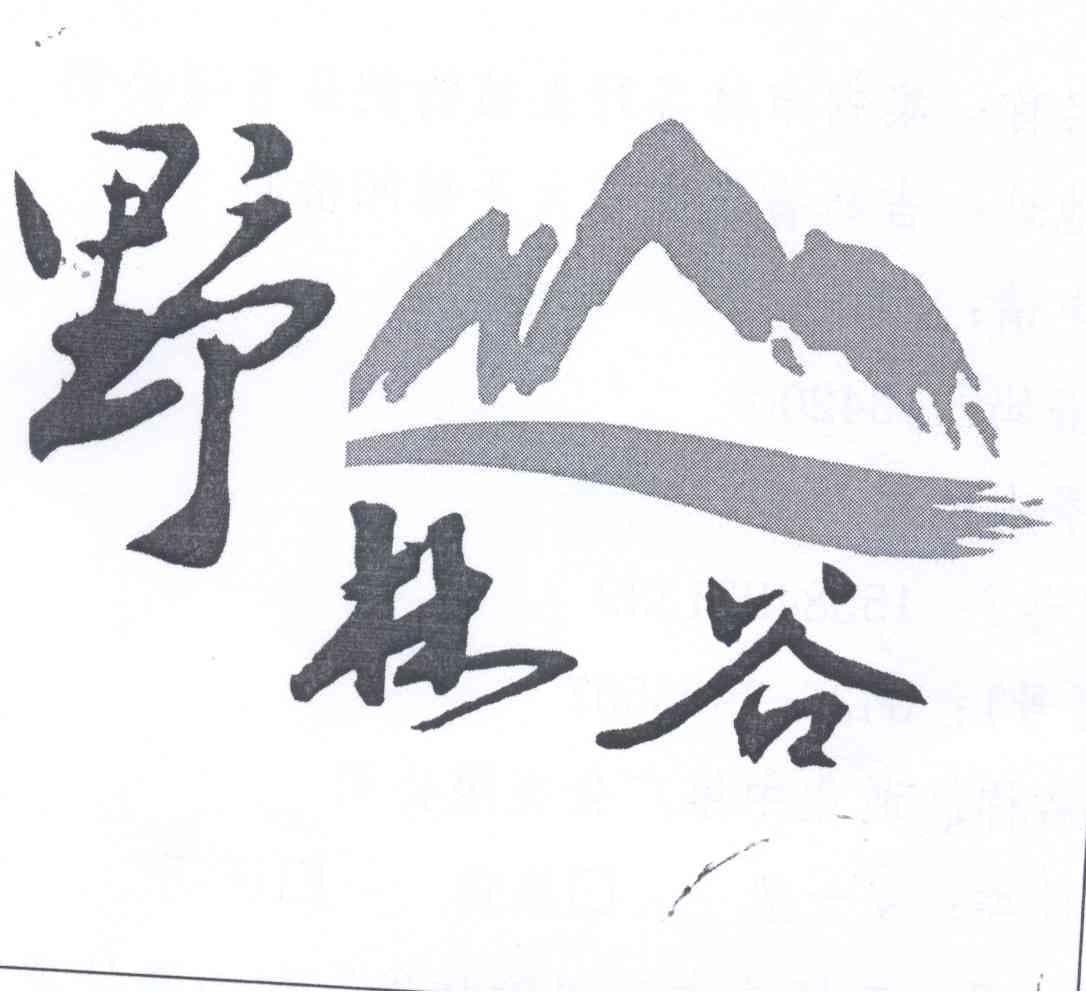 野林谷